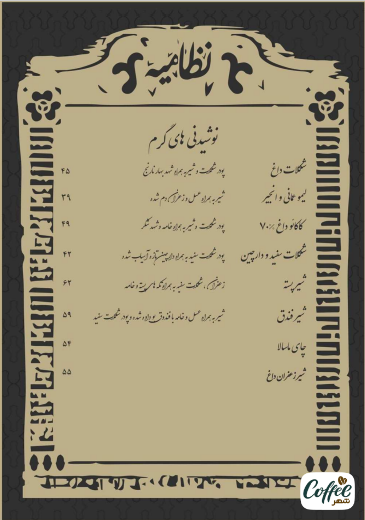 نظامیه
نوشیدنی های گرم
شکلات داغ پودر شکلات و شیر به همراه شهد بهار نارنج ۴۵
لیمو عمانی و انجیر شیر به همراه عسل و زعفران دم شده ۳۹
کاکائو داغ ۷۰٪ پودر شکلات و شیر به همراه خامه و شهد شکر ۴۹
شکلات سفید و دارچین پودر شکلات سفید به همراه دارچین تازه آسیاب شده ۴۲
شیر پسته زعفران، شکلات سفید به همراه تکه های پسته و خامه ۶۲
شیر فندق شیر به همراه عسل و خامه با فندوق بو داده شده و پودر شکلات سفید ۵۹
چای ماسالا ۵۴
شیر زعفران داغ ۵۵
Coffee شهر